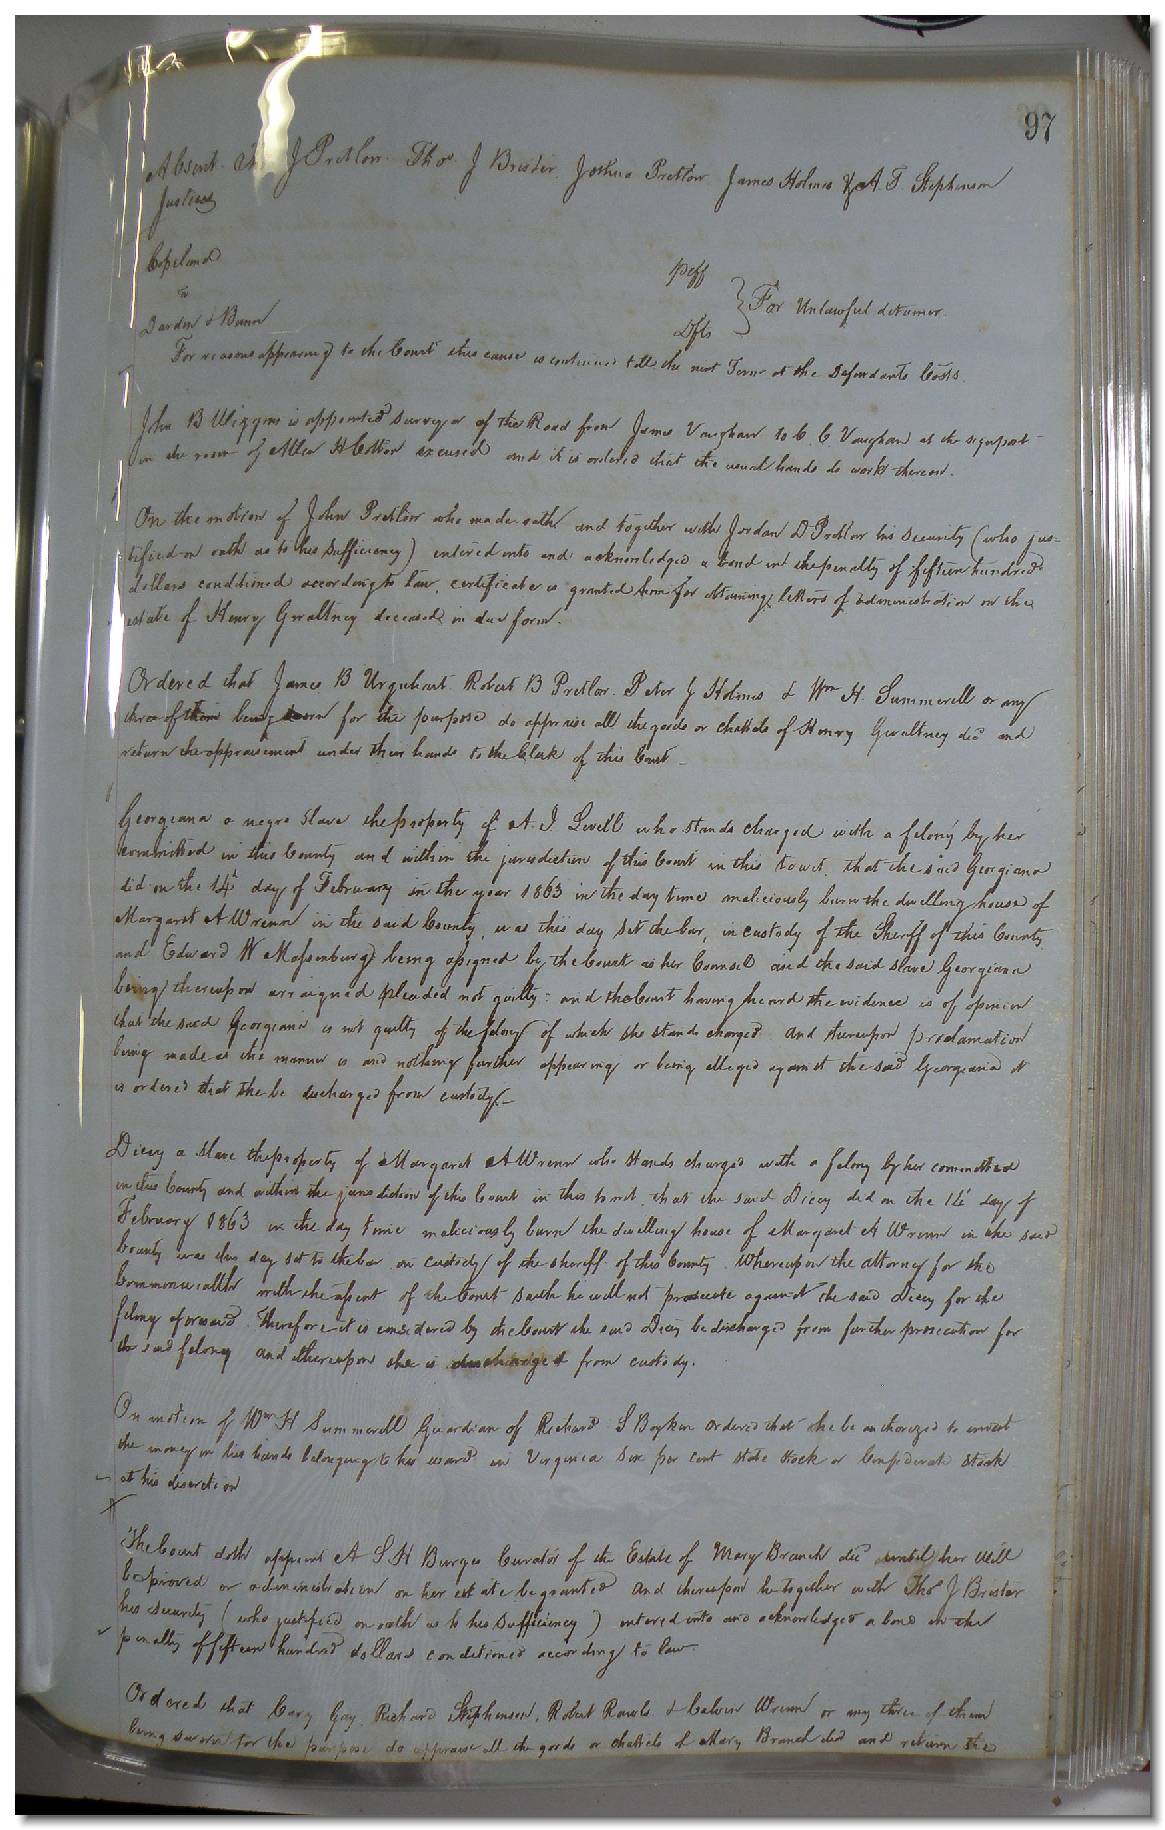 97
Absent J Pretlow. Thos. J Brister, Joshua Pretlow James Holmes & A. T. Stephenson
Justices
Copeland Plff
vs } For Unlawful detainer.
Darden & Bunn Dfts
For reasons appearing to the Court this cause is continued till the next Term at the Defendants Costs.
John B Wiggins is appointed surveyor of the Road from James Vaughan to C. C Vaughans at the signpost
in the room of Allen H Cotton excused and it is ordered that the usual hands do work thereon.
On the motion of John Pretlow who made oath and together with Jordan D Pretlow his security (who jus-
tified on oath as to his sufficiency) entered into and acknowledged a bond in the penalty of fifteen hundred
dollars conditioned according to law, certificate is granted him for obtaining letters of administration on the
estate of Henry Gwaltney deceased in due form.
Ordered that James B Urquhart Robert B Pretlow. Peter J Holmes & Wm H. Summerell or any
three of them being sworn for the purpose do appraise all the goods or chattels of Henry Gwaltney decd and
return the appraisement under their hands to the Clerk of this Court
Georgiana a negro slave the property of A. J. Lovell who stands charged with a felony by her
committed in this County and within the jurisdiction of this Court in this towit, that the said Georgiana
did on the 14th day of February in the year 1863 in the day time maliciously burn the dwelling house of
Margaret A Wrenn in the said County, was this day set the bar, in custody of the Sheriff of this County
and Edward W Massenburg being assigned by the Court as her Counsel and the said slave Georgiana
being thereupon arraigned pleaded not guilty: and the Court having heard the evidence is of opinion
that the said Georgiana is not guilty of the felony of which she stands charged and thereupon proclamation
being made as the manner is and nothing further appearing or being alleged against the said Georgiana it
is ordered that she be discharged from custody.
Dicey a slave the property of Margaret A Wrenn who stands charged with a felony by her committed
in this County and within the jurisdiction of this Court in this to wit, that the said Dicey did on the 14th day of
February 1863 in the day time maliciously burn the dwelling house of Margaret A Wrenn in the said
County was this day set to the bar in custody of the sheriff of this County. Whereupon the attorney for the
Commonwealth with the assent of the Court saith he will not prosecute against the said Dicey for the
felony aforesaid. Therefore it is considered by the Court the said Dicey be discharged from further prosecution for
the said felony and thereupon she is discharged from custody.
On motion of Wm H Summerell Guardian of Richard S Boykin ordered that he be authorized to invest
the money in his hands belonging to his ward in Virginia six per cent state stock or Confederate stock
at his discretion
The Court doth appoint A S H Burges Curator of the Estate of Mary Branch decd until her will
be proved or administration on her estate be granted and thereupon he together with Thos J Brister
his security (who justified on oath as to his sufficiency) entered into and acknowledged a bond in the
penalty of fifteen hundred dollars conditioned according to law
Ordered that Cary Gay, Richard Stephenson, Robert Rawls & Calvin Wrenn or any three of them
being sworn for the purpose do appraise all the goods or chattels of Mary Branch decd and return the